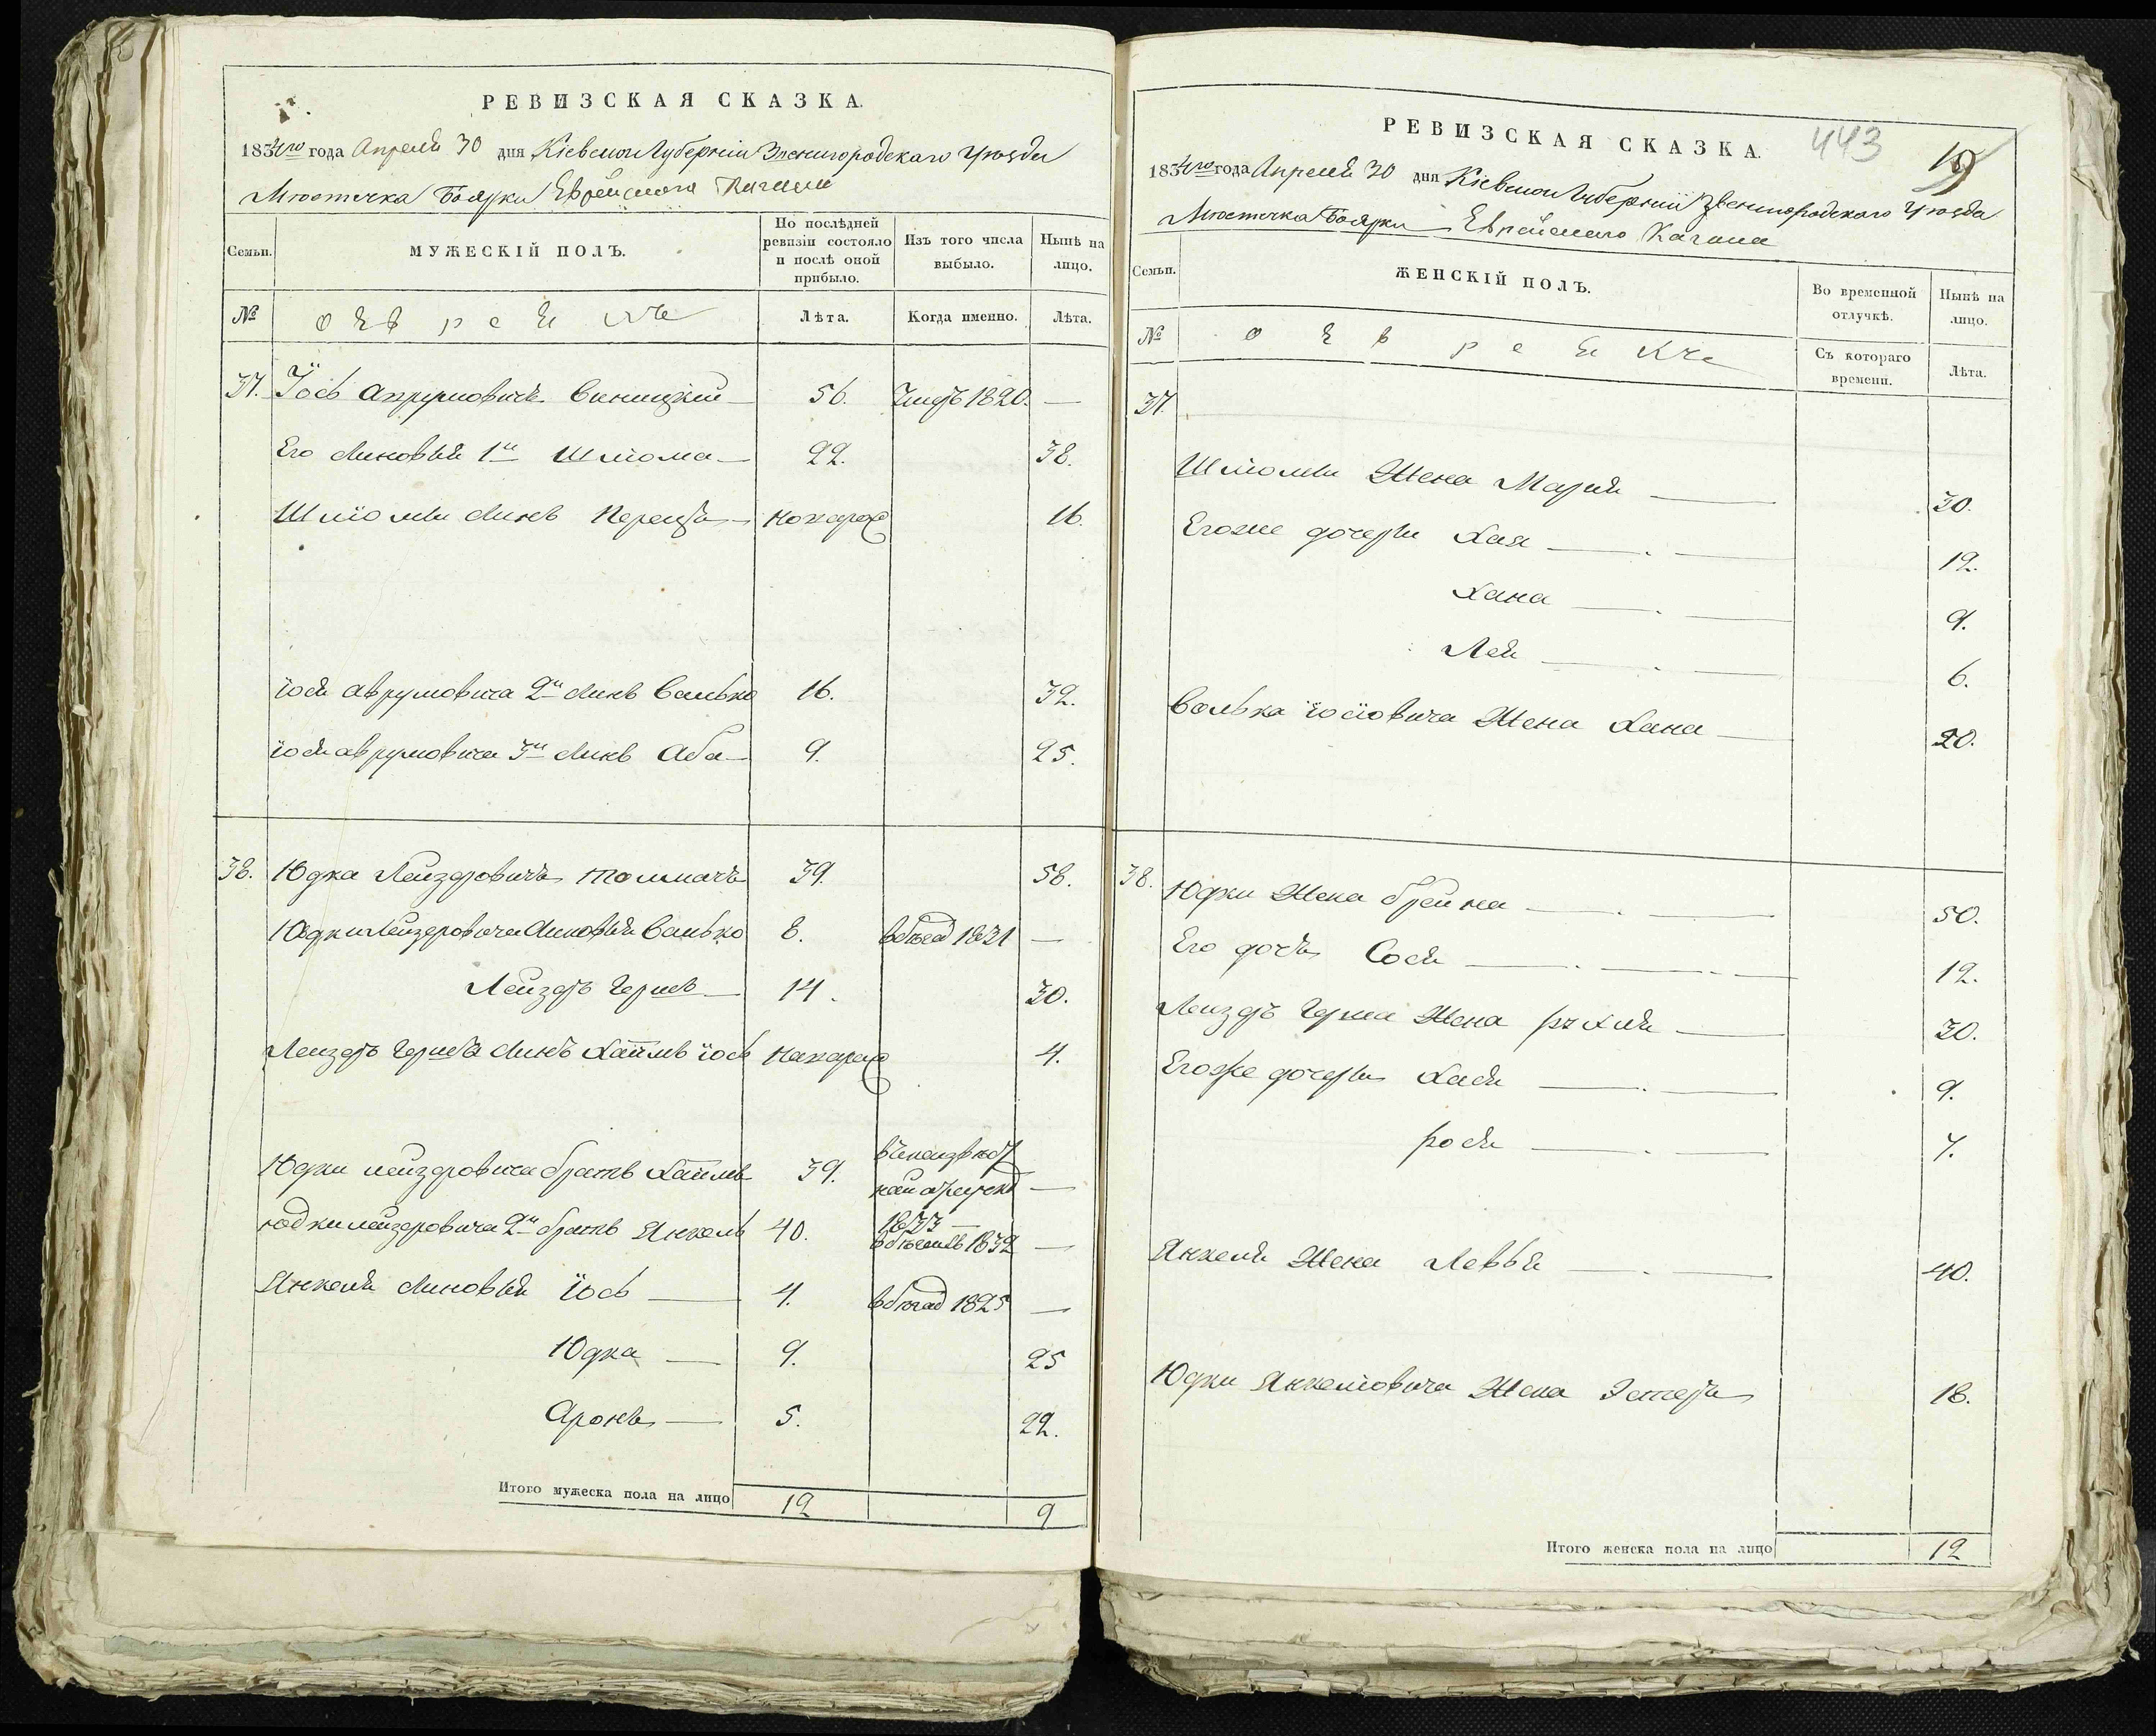 РЕВИЗСКАЯ СКАЗКА.
1834го года Апреля 30 дня Кіевской Губерніи Звенигородскаго Уѣзда
Мѣстечка Боярки Еврейскага Кагала
Семьи.
МУЖЕСКІЙ ПОЛЪ.
По послѣдней ревизіи состояло и послѣ оной прибыло.
Изъ того числа выбыло.
Нынѣ на лицо.
№
о Еврей
Лѣта.
Когда именно.
Лѣта.
37. Їось Аврумовичъ Виницкий 56. Умеръ 1820. —
Его Синовья 1й Шлїома 22. 38.
Шлїоми Синъ Перецъ новорож 16.
їося аврумовича 2й Синъ Волько 16. 32.
їося аврумовича 3й Синъ Аба 9. 25.
38. Юдка Лейзеровичъ Толмачъ 39. 58.
Юдки Лейзеровича Синовья Волько 8. 1831 —
Лейзеръ Гершъ 14. 30.
Лейзеръ Герша Синъ Хаимъ їось новорож 4.
Юдки лейзеровича братъ Хаимъ 39. —
1833 —
юдки лейзеровича 2й братъ Янкель 40. 1832 —
Янкеля Синовья їось 4. 1825 —
Юдка 9. 25
Аронъ 5. 22.
Итого мужеска пола на лицо 12 9
РЕВИЗСКАЯ СКАЗКА.
443
19
1834го года Апреля 30 дня Кіевской Губерніи Звенигородскаго Уѣзда
Мѣстечка Боярки Еврейскаго Кагала
Семьи.
ЖЕНСКІЙ ПОЛЪ.
Во временной отлучкѣ.
Нынѣ на лицо.
№
о Еврей
Съ котораго времени.
Лѣта.
37.
Шлїоми Жена Марія 30.
Егоже дочери Хая 12.
Хана 9.
Лея 6.
Волька їосїовича Жена Хана 20.
38. Юдки Жена Брейна 50.
Его дочъ Сося 12.
Лейзеръ Герша Жена Рухля 30.
Егоже дочери Хася 9.
Рося 7.
Янкеля Жена Ревья 40.
Юдки Янкелїовича Жена Эстеръ 18.
Итого женска пола на лицо 12